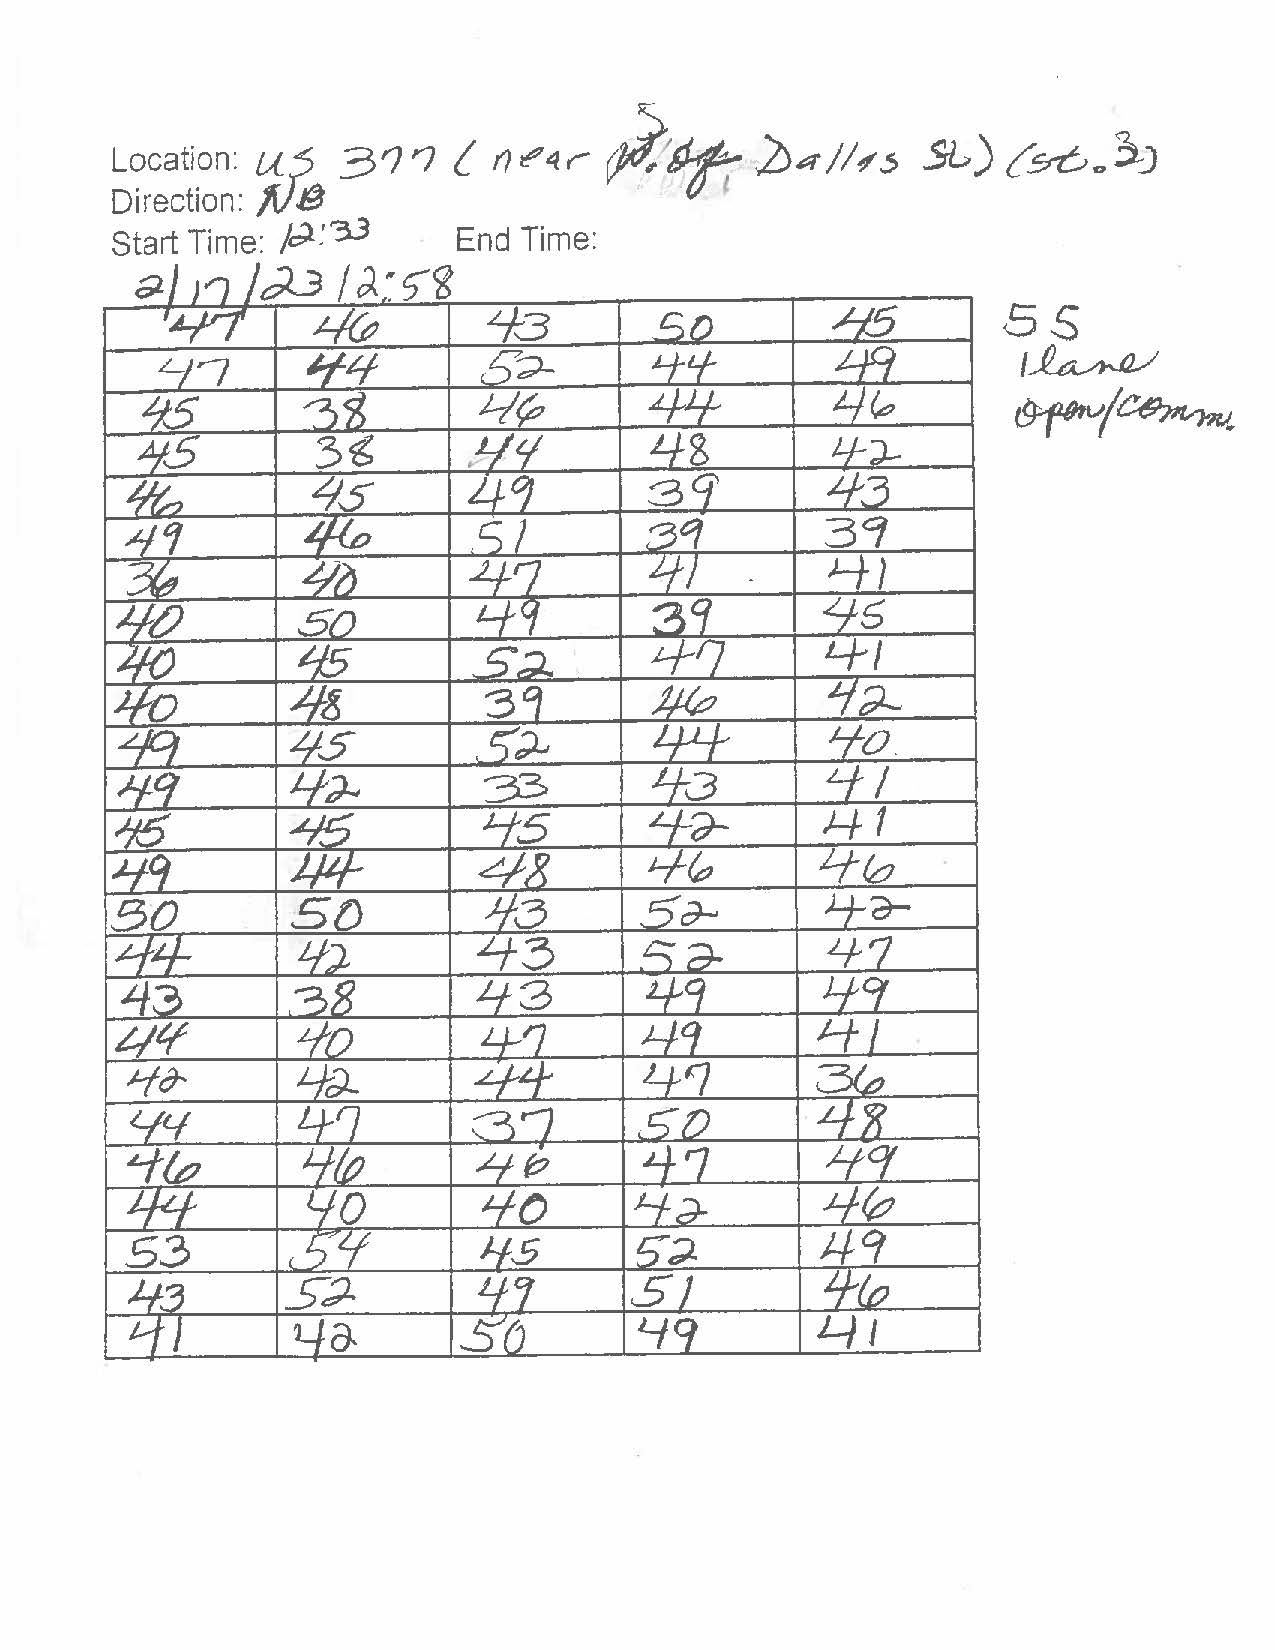 Location: US 377 ( near S. Dallas St.) (st. 3)
Direction: NB
Start Time: 12:33 End Time:
2/17/23 12:58
47 46 43 50 45 55
47 44 52 44 49 1 lane
45 38 46 44 46 open/comm.
45 38 44 48 42
46 45 49 39 43
49 46 51 39 39
36 40 47 41 41
40 50 49 39 45
40 45 52 47 41
40 48 39 46 42
49 45 52 44 40
49 42 33 43 41
45 45 45 42 41
49 44 48 46 46
50 50 43 52 42
44 42 43 52 47
43 38 43 49 49
44 40 47 49 41
42 42 44 47 36
44 47 37 50 48
46 46 46 47 49
44 40 40 42 46
53 54 45 52 49
43 52 49 51 46
41 42 50 49 41